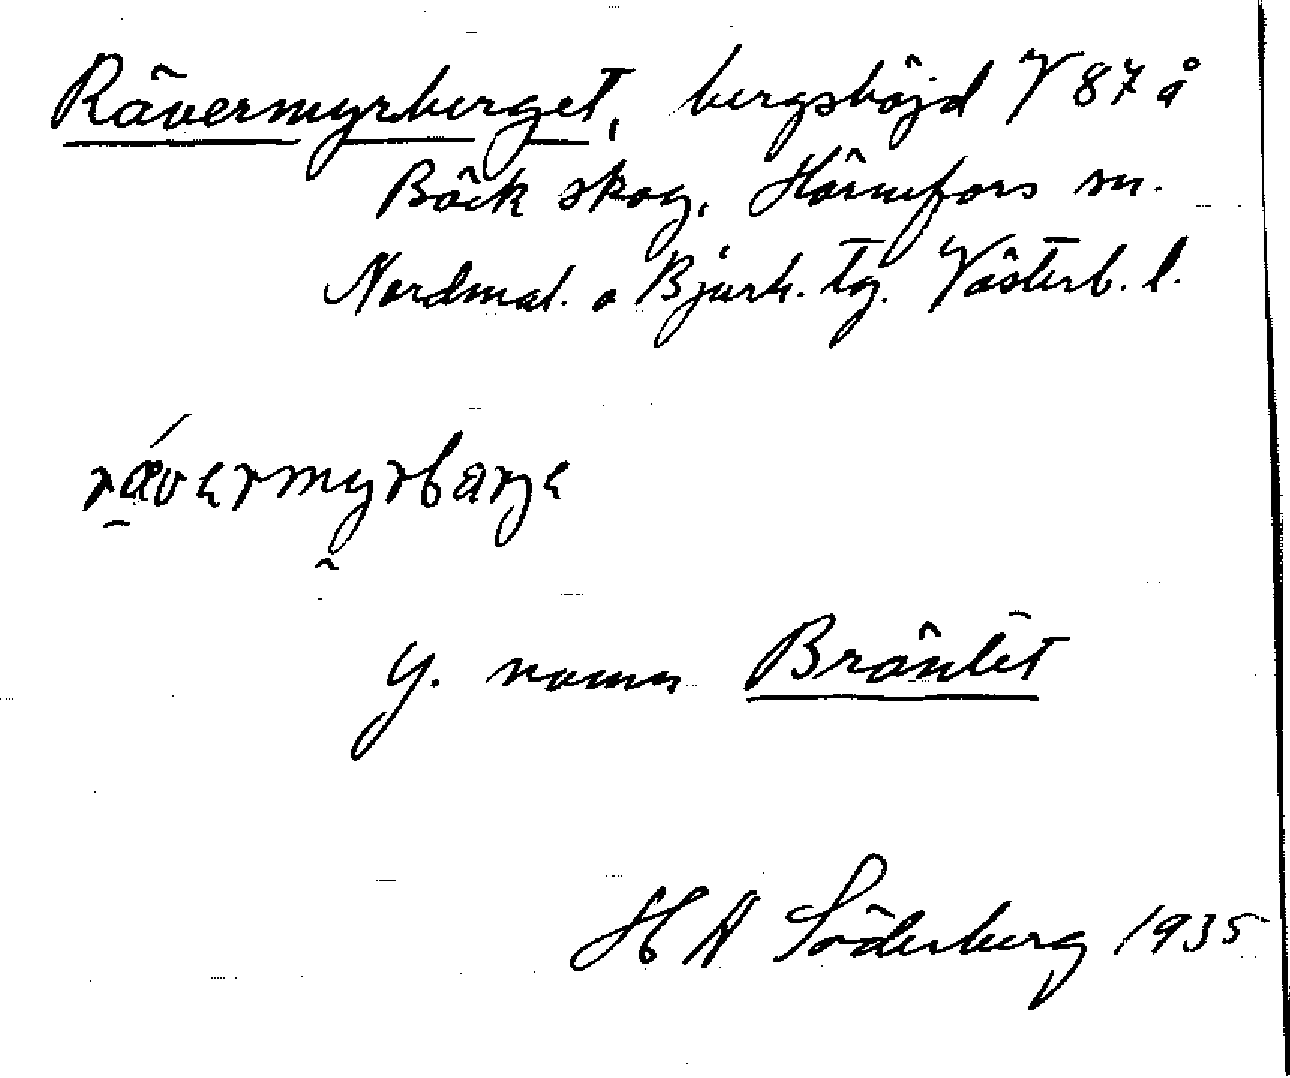 Rävermyrberget, bergshöjd V 87 å
Bäck skog, Hörnefors sn.
Nordmal. o Bjurh. tg. Västerb. l.
rävermyrbærjε
y. namn Bräntet
H A Söderberg 1935